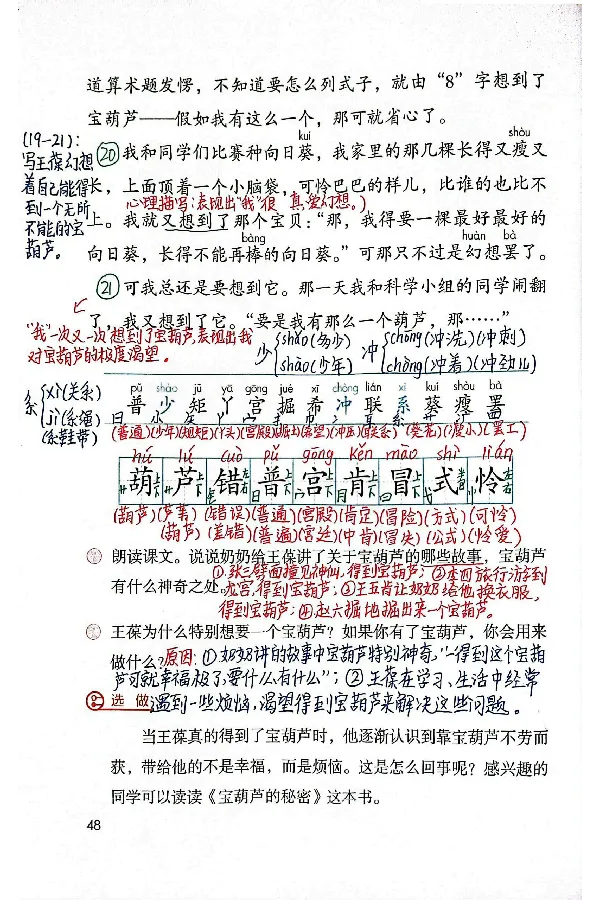 道算术题发愣，不知道要怎么列式子，就由“8”字想到了
宝葫芦——假如我有这么一个，那可就省心了。
kuí shòu
⑳我和同学们比赛种向日葵，我家里的那几棵长得又瘦又
长，上面顶着一个小脑袋，可怜巴巴的样儿，比谁的也比不
心理描写：表现出“我”很真，爱幻想。）
上。我就又想到了那个宝贝：“那，我得要一棵最好最好的
bàng huàn bà
向日葵，长得不能再棒的向日葵。”可那只不过是幻想罢了。
(19-21)：
写王葆幻想
着自己能得
到一个无所
不能的宝
葫芦。
㉑可我总还是要想到它。那一天我和科学小组的同学闹翻
了，我又想到了它。“要是我有那么一个葫芦，那……”
“我”一次又一次想到了宝葫芦，表现出我
对宝葫芦的极度渴望。
少 shǎo(多少) shào(少年)
冲 chōng(冲洗)(冲刺) chòng(冲着)(冲劲儿)
系 xì(关系) jì(系绳)(系鞋带)
pǔ shào jǔ yā gōng jué xī chòng lián xì kuí shòu bà
普 少 矩 丫 宫 掘 希 冲 联 系 葵 瘦 罢
(普通)(少年)(规矩)(丫头)(宫殿)(掘出)(希望)(冲压)(联系)(葵花)(瘦小)(罢工)
hú lú cuò pǔ gōng kěn mào shì lián
葫 芦 错 普 宫 肯 冒 式 怜
(葫芦)(芦苇)(错误)(普通)(宫殿)(肯定)(冒险)(方式)(可怜)
(葫芦)(差错)(普遍)(宫廷)(中肯)(冒失)(公式)(怜爱)
朗读课文。说说奶奶给王葆讲了关于宝葫芦的哪些故事，宝葫芦
有什么神奇之处。
①张三劈面撞见神仙，得到宝葫芦；②李四旅行游到
龙宫，得到宝葫芦；③王五肯让奶奶给他换衣服，
得到宝葫芦；④赵六掘地掘出来一个宝葫芦。
王葆为什么特别想要一个宝葫芦？如果你有了宝葫芦，你会用来
做什么？
原因：①奶奶讲的故事中宝葫芦特别神奇，“一得到这个宝葫
芦可就幸福极了，要什么有什么”；②王葆在学习、生活中经常
遇到一些烦恼，渴望得到宝葫芦来解决这些问题。
选做
当王葆真的得到了宝葫芦时，他逐渐认识到靠宝葫芦不劳而
获，带给他的不是幸福，而是烦恼。这是怎么回事呢？感兴趣的
同学可以读读《宝葫芦的秘密》这本书。
48